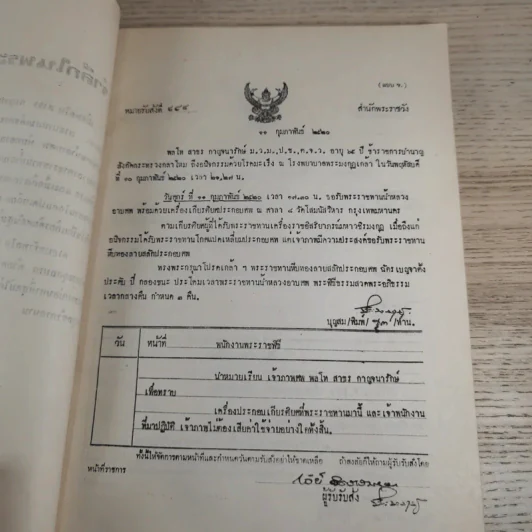 (ตอน ข.)
หมายรับสั่งที่ ๔๔๔ สำนักพระราชวัง
๑๑ กุมภาพันธ์ ๒๕๒๐
พลโท สาธร กาญจนารักษ์ ม.ว.ม.,ป.ช., อายุ ๖๕ ปี ข้าราชการบำนาญ
สังกัดกระทรวงกลาโหม ถึงอนิจกรรมด้วยโรคมะเร็ง ณ โรงพยาบาลพระมงกุฎเกล้า ในวันพฤหัสบดี
ที่ ๑๐ กุมภาพันธ์ ๒๕๒๐ เวลา ๒๐,๒๗ น.
วันศุกร์ ที่ ๑๑ กุมภาพันธ์ ๒๕๒๐ เวลา ๑๗.๓๐ น. ขอรับพระราชทานน้ำหลวง
อาบศพ พร้อมด้วยเครื่องเกียรติยศประกอบศพ ณ ศาลา ๘ วัดโสมนัสวิหาร กรุงเทพมหานคร
ตามเกียรติยศผู้ที่ได้รับพระราชทานเครื่องราชอิสริยาภรณ์มหาวชิรมงกุฎ เมื่อถึงแก่
อนิจกรรมได้รับพระราชทานโกศแปดเหลี่ยมประกอบศพ แต่เจ้าภาพมีความประสงค์ขอรับพระราชทาน
หีบทองลายสลักประกอบศพ
ทรงพระกรุณาโปรดเกล้า ฯ พระราชทานหีบทองลายสลักประกอบศพ ฉัตรเบญจาตั้ง
ประดับ ปี่ กลองชนะ ประโคมเวลาพระราชทานน้ำหลวงอาบศพ พระพิธีธรรมสวดพระอภิธรรม
เวลากลางคืน กำหนด ๓ คืน.
บุญสม/พิมพ์/ /ทาน.
วัน หน้าที่ พนักงานพระราชพิธี
นำหมายเรียน เจ้าภาพศพ พลโท สาธร กาญจนารักษ์
เพื่อทราบ
เครื่องประกอบเกียรติยศที่พระราชทานมานี้ และเจ้าพนักงาน
ที่มาปฏิบัติ เจ้าภาพไม่ต้องเสียค่าใช้จ่ายอย่างใดทั้งสิ้น.
ทั้งนี้ให้จัดการตามหน้าที่และกำหนดวันตามรับสั่งอย่าให้ขาดเหลือ ถ้าสงสัยก็ให้ถามผู้รับรับสั่งโดย
หน้าที่ราชการ
ผู้รับรับสั่ง